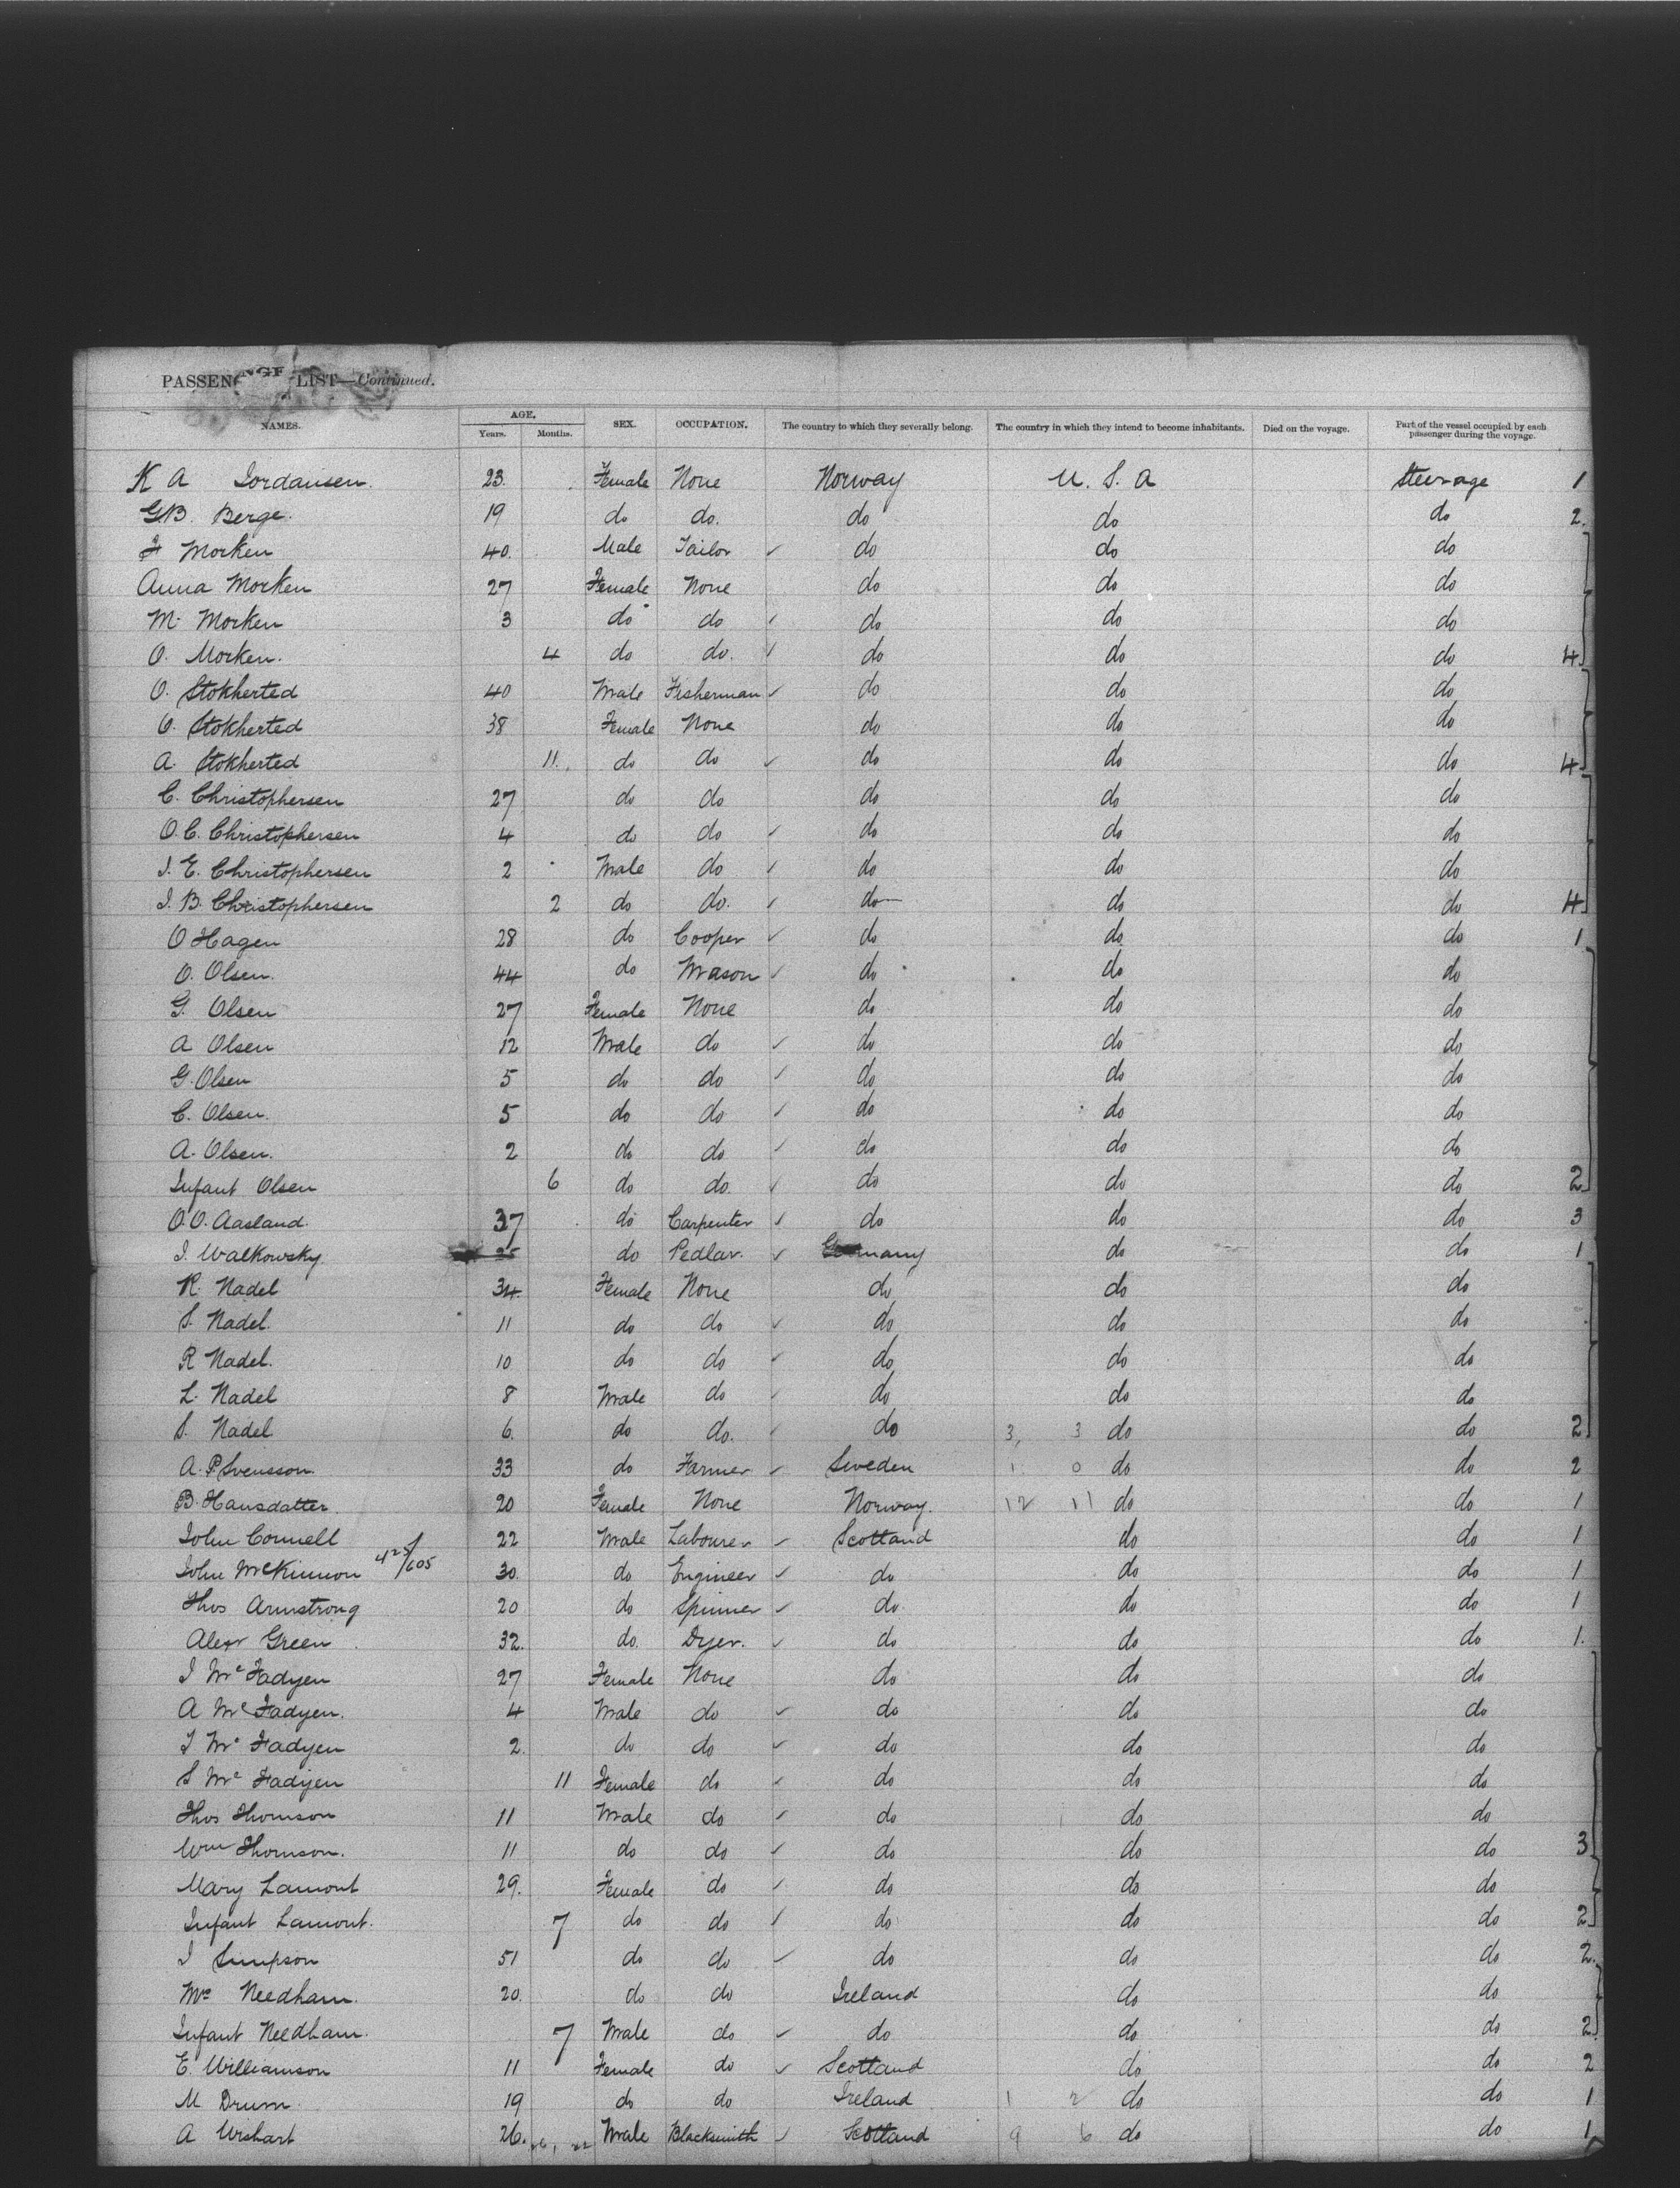 PASSENGER LIST—Continued.
NAMES. AGE. Years. Months. SEX. OCCUPATION. The country to which they severally belong. The country in which they intend to become inhabitants. Died on the voyage. Part of the vessel occupied by each passenger during the voyage.
K A Iordansen. 23. Female None Norway U. S. A Steerage 1
G.B. Berge. 19 do do. do do do 2.
Morken 40. Male Tailor ✓ do do do
Anna Morken 27 Female None do do do
M. Morken 3 do do ✓ do do do
O. Morken. 4 do do. ✓ do do do 4
O. Stokherted 40 Male Fisherman ✓ do do do
O. Stokherted 38 Female None do do do
A. Stokherted 11. do do ✓ do do do 4
C. Christophersen 27 do do do do do
O.C. Christophersen 4 do do ✓ do do do
I. E. Christophersen 2 Male do ✓ do do do
I. B. Christophersen 2 do do. ✓ do do do 4
O Hagen 28 do Cooper ✓ do do do 1
O. Olsen. 44 do Mason ✓ do do do
G. Olsen 27 Female None do do do
A Olsen 12 Male do ✓ do do do
G. Olsen 5 do do ✓ do do do
C. Olsen. 5 do do ✓ do do do
A. Olsen. 2 do do ✓ do do do
Infant Olsen 6 do do. ✓ do do do 2
O.O. Aasland. 37 do Carpenter ✓ do do do 3
I. Walkowsky 25 do Pedlar. ✓ Germany do do 1
R. Nadel 34. Female None do do do
S. Nadel. 11 do do ✓ do do do
R Nadel. 10 do do ✓ do do do
L. Nadel 8 Male do ✓ do do do
S. Nadel 6. do do. ✓ do 3, 3 do do 2
A. P Svensson. 33 do Farmer ✓ Sweden 1 0 do do 2
B. Hansdatter. 20 Female None Norway. 12 11 do do 1
John Connell 22 Male Labourer ✓ Scotland do do 1
John McKinnon 425/605 30. do Engineer ✓ do do do 1
Thos Armstrong 20 do Spinner ✓ do. do do 1
Alexr Green 32. do. Dyer. ✓ do do do 1.
I McFadyen 27 Female None do do do
A McFadyen. 4 Male do ✓ do do do
I McFadyen 2. do do ✓ do do do
S McFadyen 11 Female do ✓ do do do
Thos Thomson 11 Male do ✓ do do do
Wm Thomson. 11 do do ✓ do do do 3
Mary Lamont 29. Female do ✓ do do do
Infant Lamont. 7 do do ✓ do do do 2
I Simpson 51 do do ✓ do do do 2.
Mrs Needham. 20. do do Ireland do do
Infant Needham. 7 Male do ✓ do do do 2
E. Williamson 11 Female do ✓ Scotland do do 2
M Drum. 19 do do Ireland 1 2 do do 1
A Wishart 26. 26, 22 Male Blacksmith ✓ Scotland 9 6 do do 1